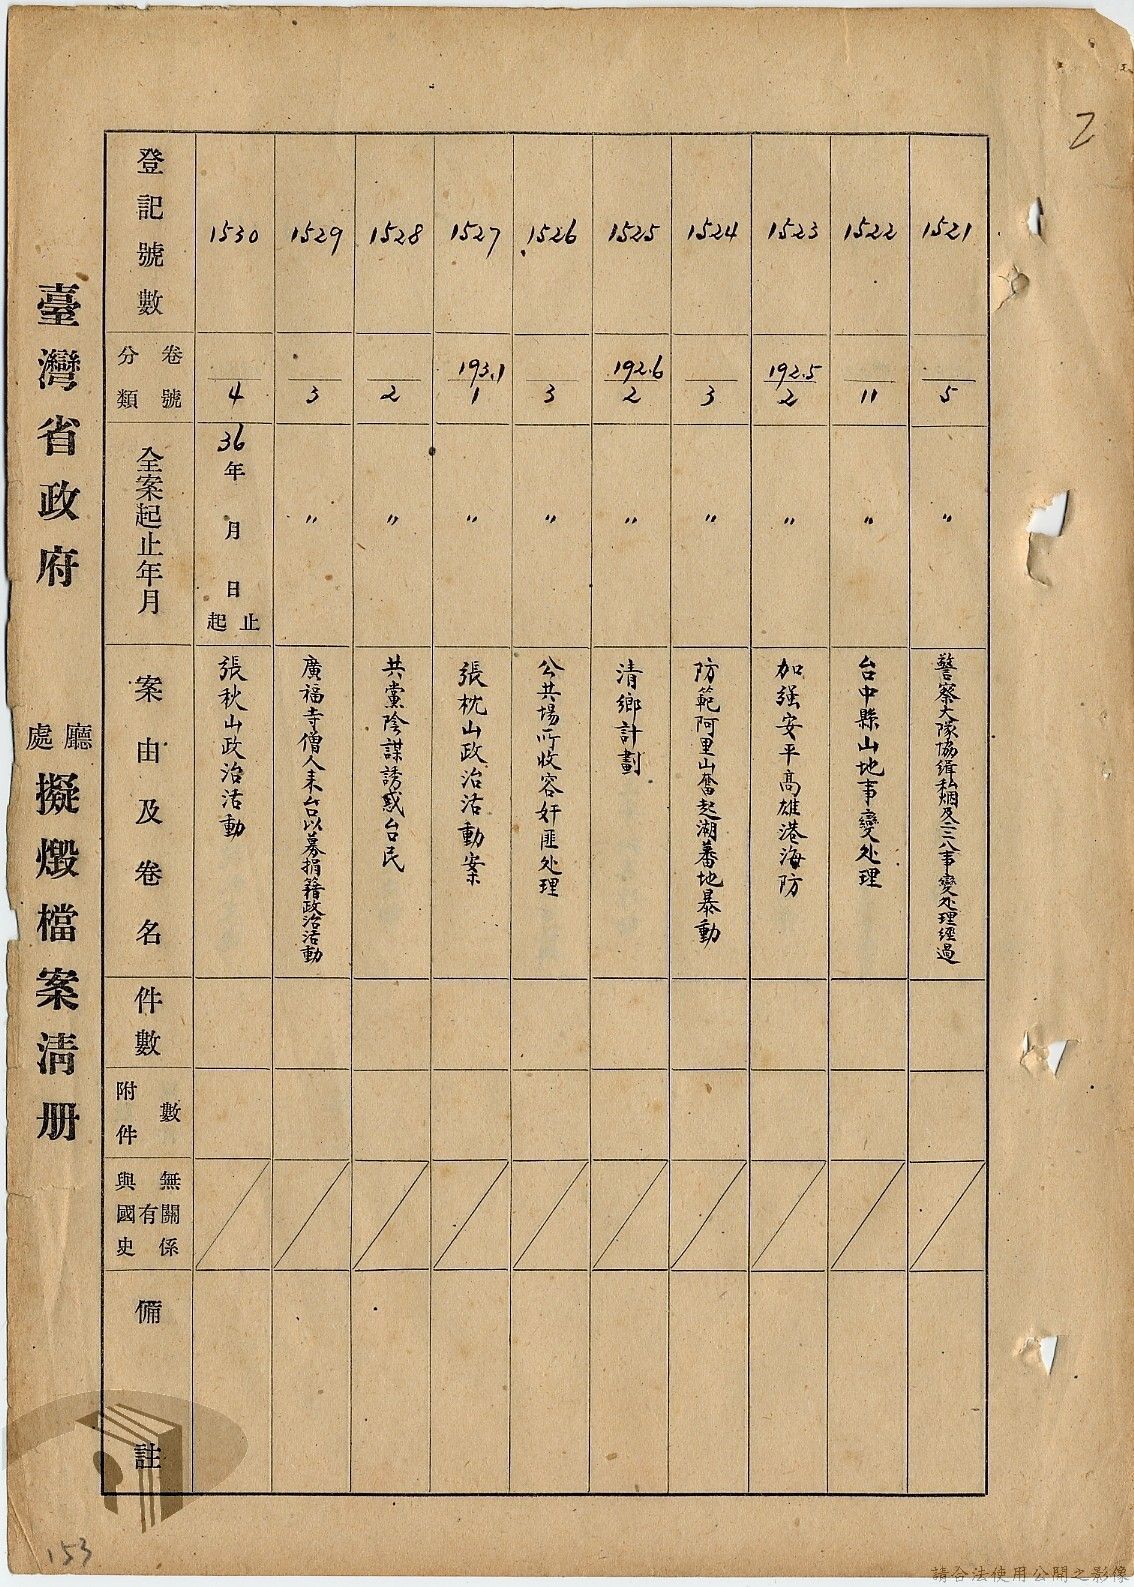 2
臺灣省政府 廳處 擬燬檔案清册
登記號數
分類 卷號
全案起止年月
案由及卷名
件數
附件 數
與國史 有無關係
備註
1530
4
36年 月 日 起 止
張秋山政治活動
1529
3
〃
廣福寺僧人来台以募捐籍政治活動
1528
2
〃
共黨陰謀誘惑台民
1527
193.1
1
〃
張枕山政治活動案
1526
3
〃
公共場所收容奸匪处理
1525
192.6
2
〃
清鄉計劃
1524
3
〃
防範阿里山奮起湖蕃地暴動
1523
192.5
2
〃
加强安平高雄港海防
1522
11
〃
台中縣山地事變处理
1521
5
〃
警察大隊協緝私烟及二二八事變处理經過
153
請合法使用公開之影像